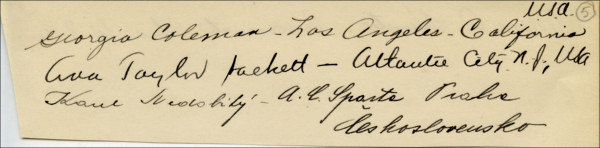 USA. 5
Georgia Coleman - Los Angeles - California
Ada Taylor Sackett — Atlantic City. N.J., USA
Nedobitý - A.C. Sparta Praha
Československo